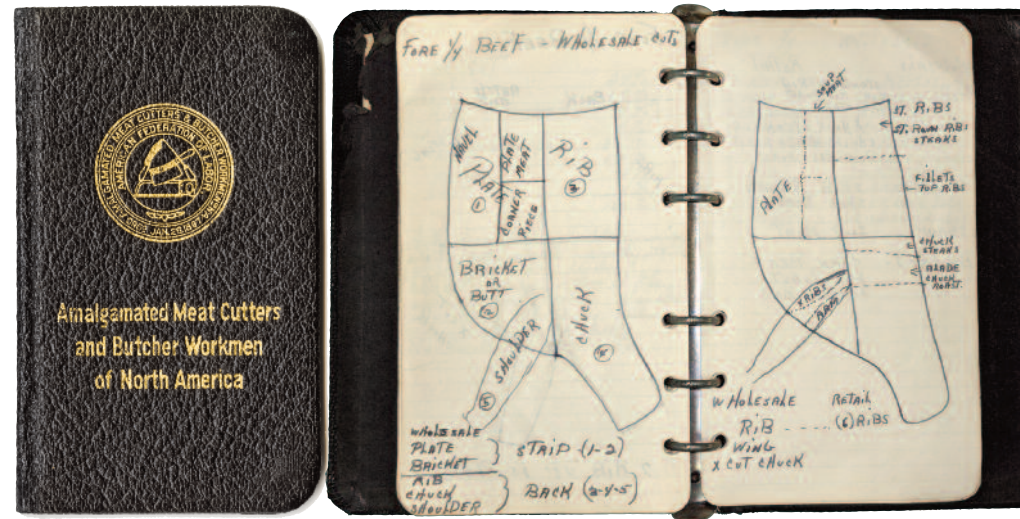 AMALGAMATED MEAT CUTTERS & BUTCHER WORKMEN
AMERICAN FEDERATION OF LABOR
Amalgamated Meat Cutters
and Butcher Workmen
of North America
FORE 1/4 BEEF - WHOLESALE CUTS
NAVEL
PLATE
1
PLATE
MEAT
CORNER
PIECE
RIB
BRICKET
OR
BUTT
2
CHUCK
4
SHOULDER
5
WHOLESALE
PLATE
BRICKET
STRIP (1-2)
RIB
CHUCK
SHOULDER
BACK (3-4-5)
SOUP
MEAT
ST. RIBS
STEAKS
PLATE
FILLETS
TOP RIBS
CHUCK
STEAKS
BLADE
CHUCK
ROAST
X RIBS
WHOLESALE
RIB
WING
X CUT CHUCK
RETAIL
(6) RIBS